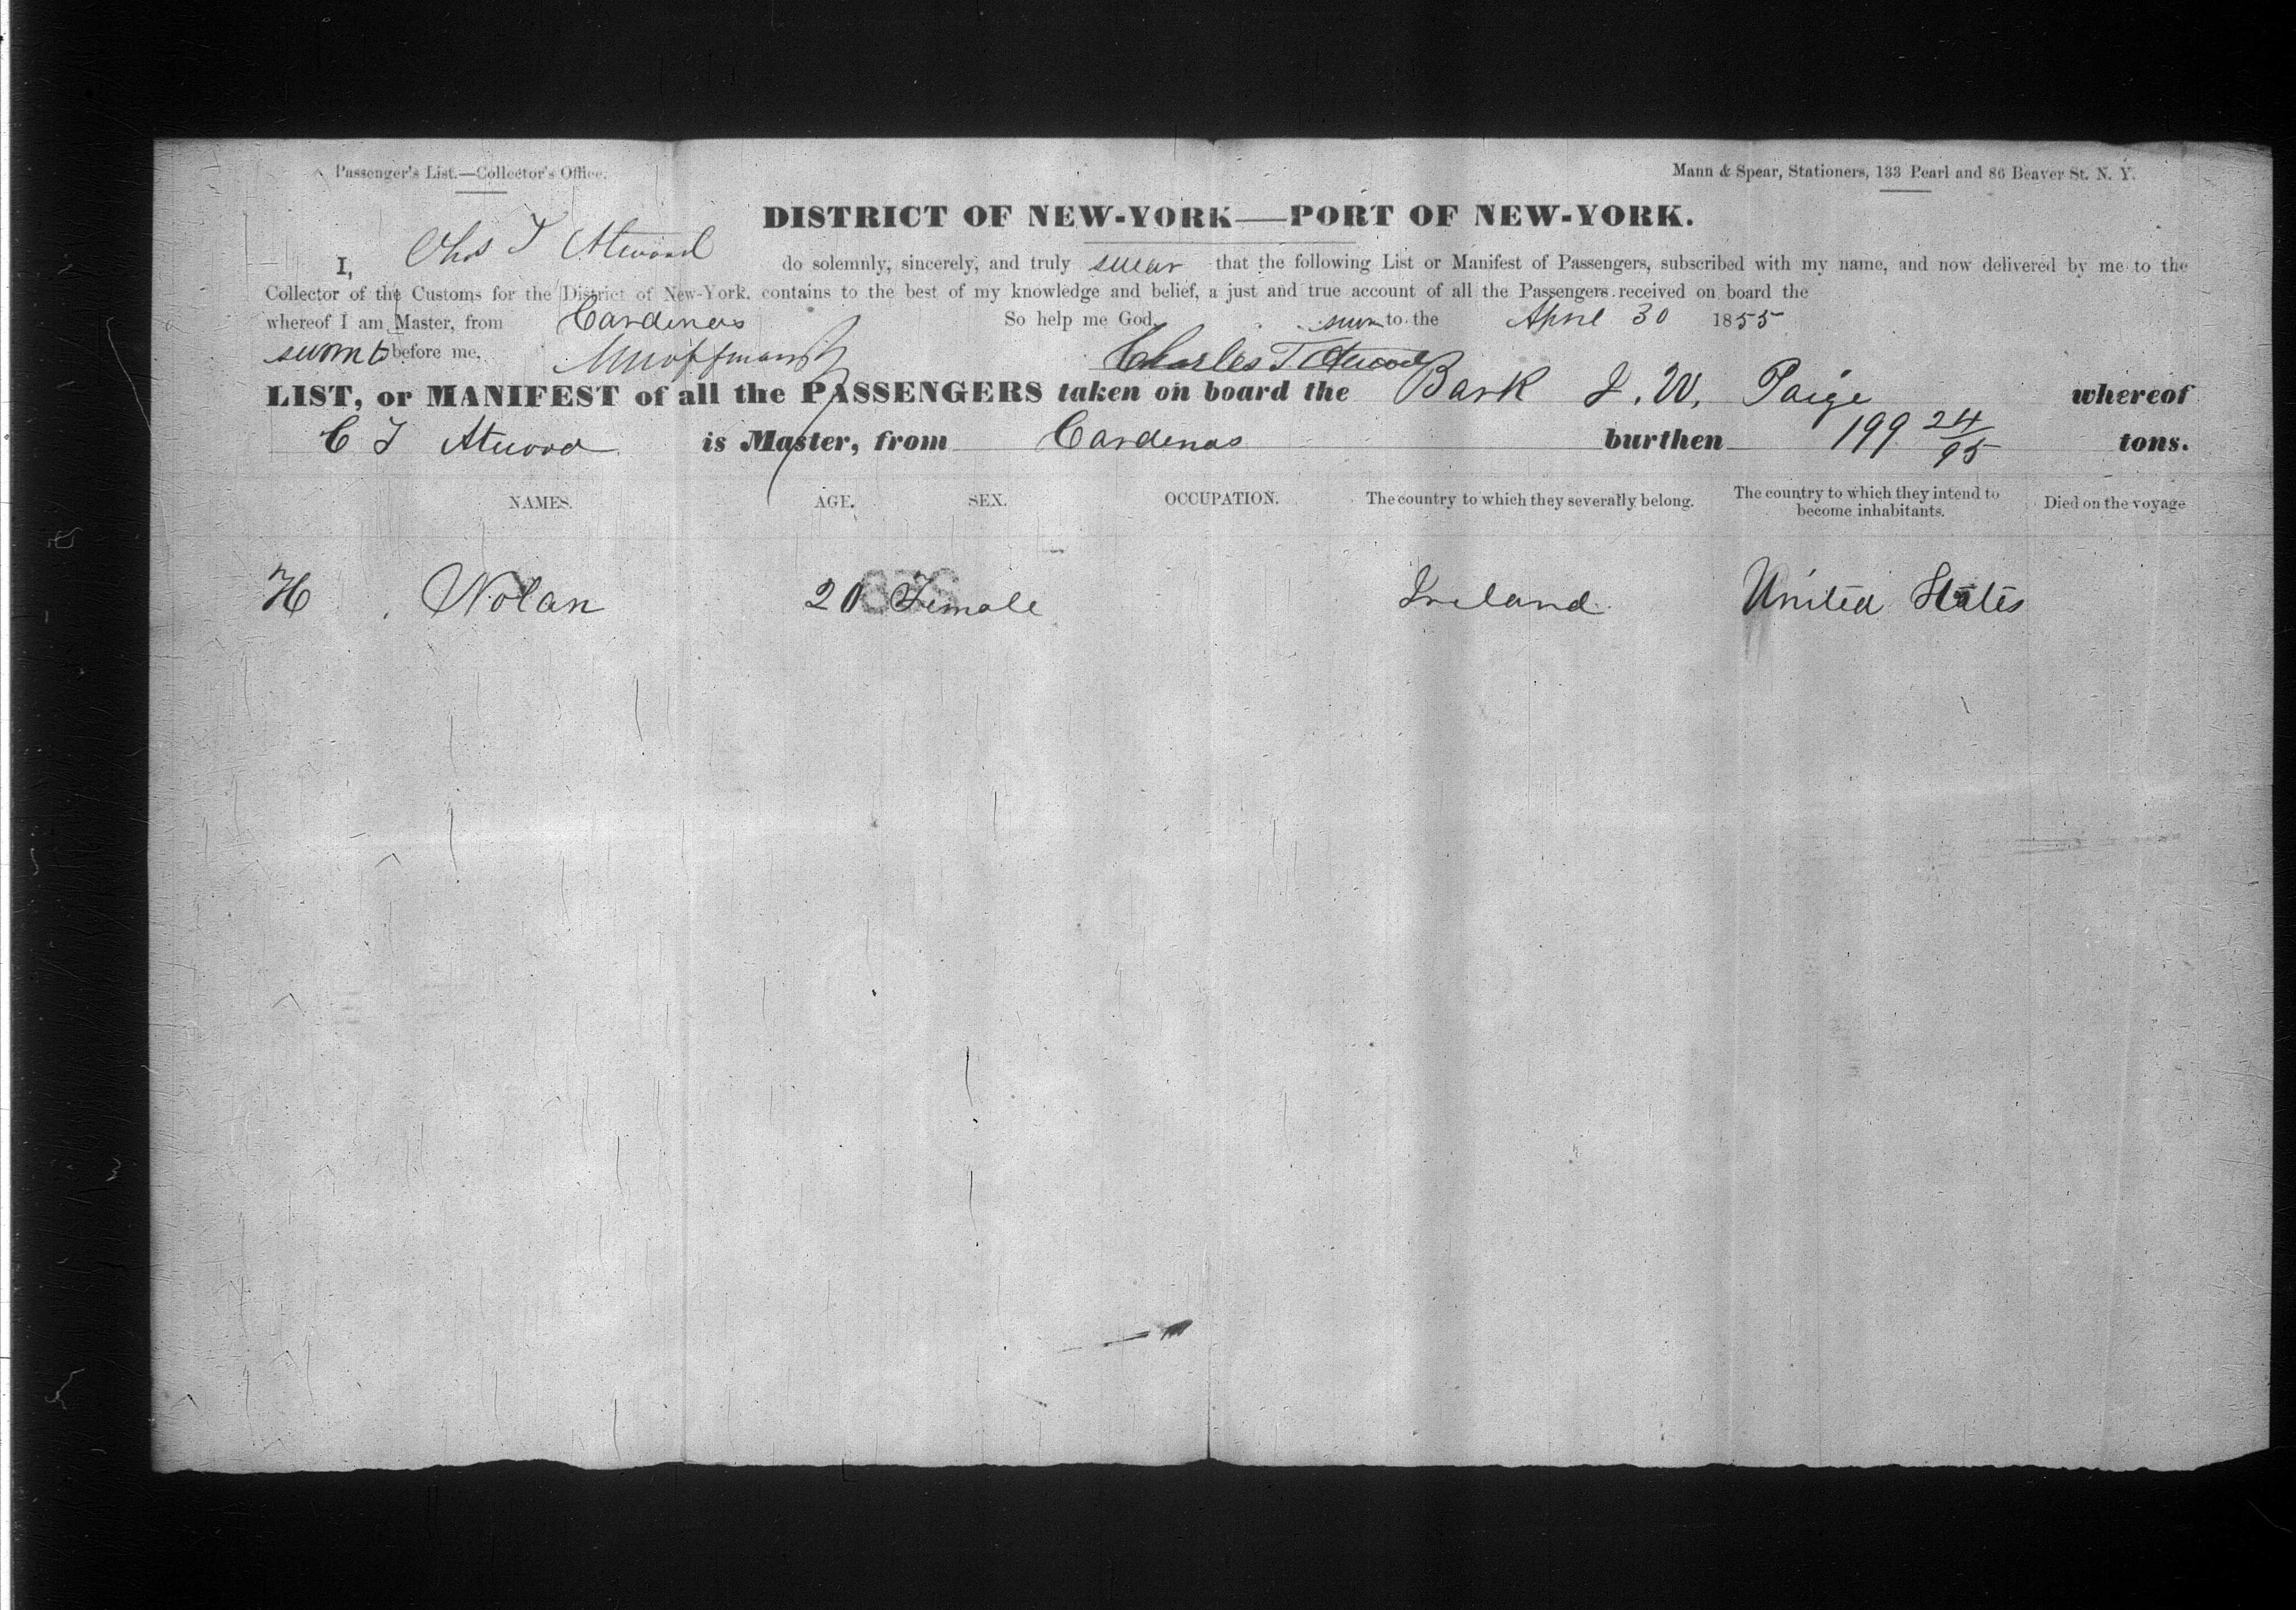 Passenger's List.—Collector's Office.
Mann & Spear, Stationers, 133 Pearl and 86 Beaver St. N. Y.
DISTRICT OF NEW-YORK—PORT OF NEW-YORK.
I, Chs T Atwood do solemnly, sincerely, and truly swear that the following List or Manifest of Passengers, subscribed with my name, and now delivered by me to the
Collector of the Customs for the District of New-York, contains to the best of my knowledge and belief, a just and true account of all the Passengers received on board the
whereof I am Master, from Cardenas So help me God. to the April 30 1855
before me, Charles T. Atwood
LIST, or MANIFEST of all the PASSENGERS taken on board the Bark J. W. Paige whereof
C T Atwood is Master, from Cardenas burthen 199 24/95 tons.
NAMES. AGE. SEX. OCCUPATION. The country to which they severally belong. The country to which they intend to become inhabitants. Died on the voyage
H Nolan 20 Female Ireland United States